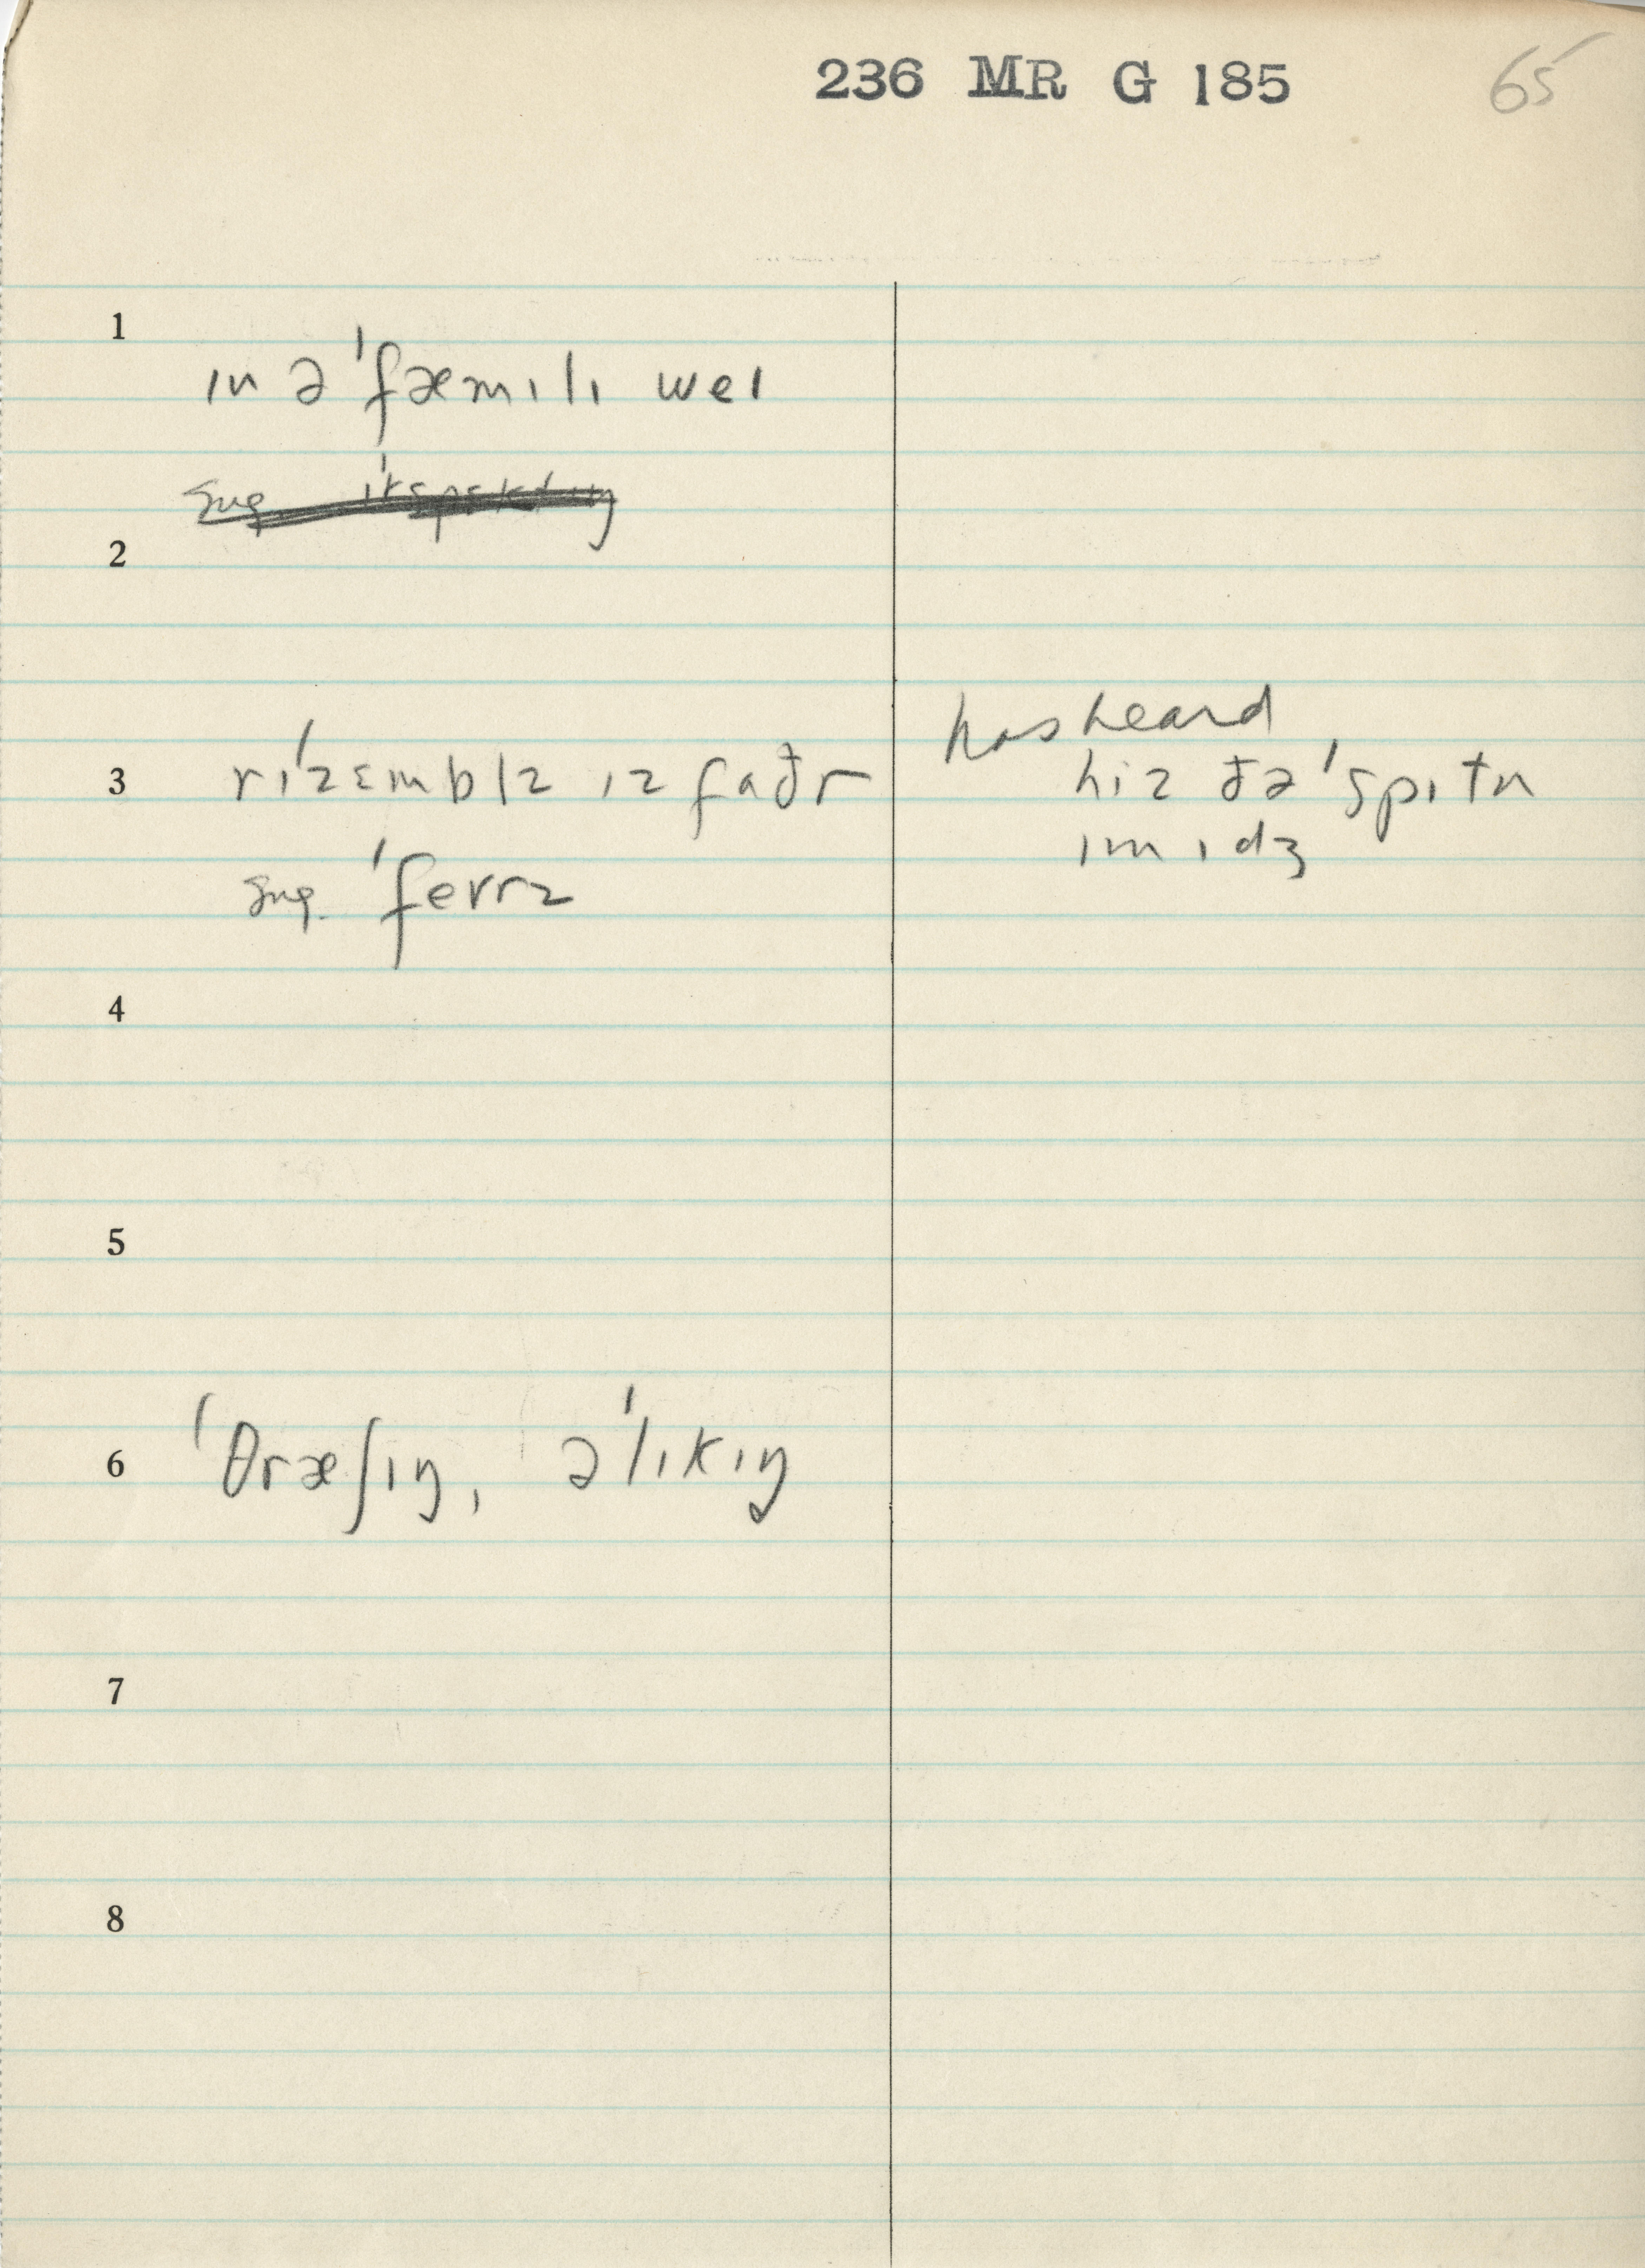 236 MR G 185
65
1
ɪn ə ˈfæmɪlɪ weɪ
sug. ɪˈkspɛktɪŋ
2
3
rɪˈzɛmblz ɪz faðr
sug. ˈfevrz
has heard
hiz ðə ˈspɪtn
ɪmɪdʒ
4
5
6
ˈθræʃɪŋ, əˈlɪkɪŋ
7
8